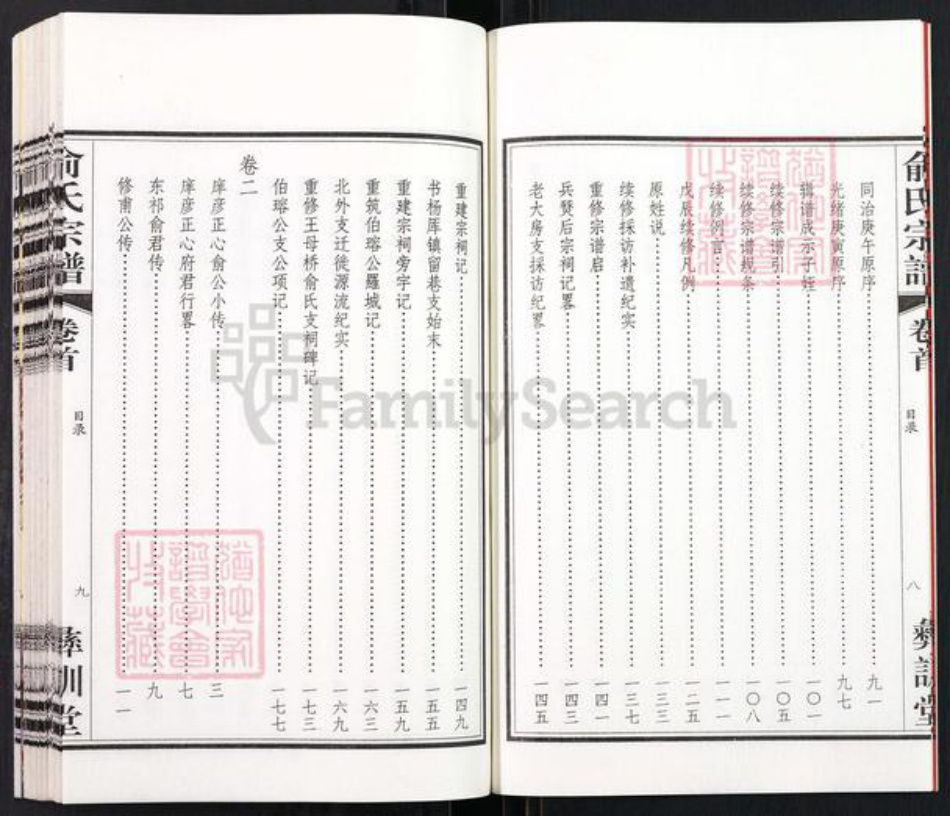 俞氏宗谱
卷首
目录
八
彝训堂
同治庚午原序 九一
光绪庚寅原序 九七
辑谱成示子姪 一〇一
续修宗谱引 一〇五
续修宗谱规条 一〇八
续修例言 一一一
戊辰续修凡例 一二五
原姓说 一三三
续修採访补遗纪实 一三七
重修宗谱启 一四一
兵燹后宗祠记畧 一四三
老大房支採访纪畧 一四五
重建宗祠记 一四九
书杨厍镇留巷支始末 一五五
重建宗祠旁宇记 一五九
重筑伯瑢公羅城记 一六三
北外支迁徙源流纪实 一六九
重修王母桥俞氏支祠碑记 一七三
伯瑢公支公项记 一七七
卷二
庠彦正心俞公小传 三
庠彦正心府君行畧 七
东祁俞君传 九
修甫公传 一一
俞氏宗谱
卷首
目录
九
彝训堂
FamilySearch